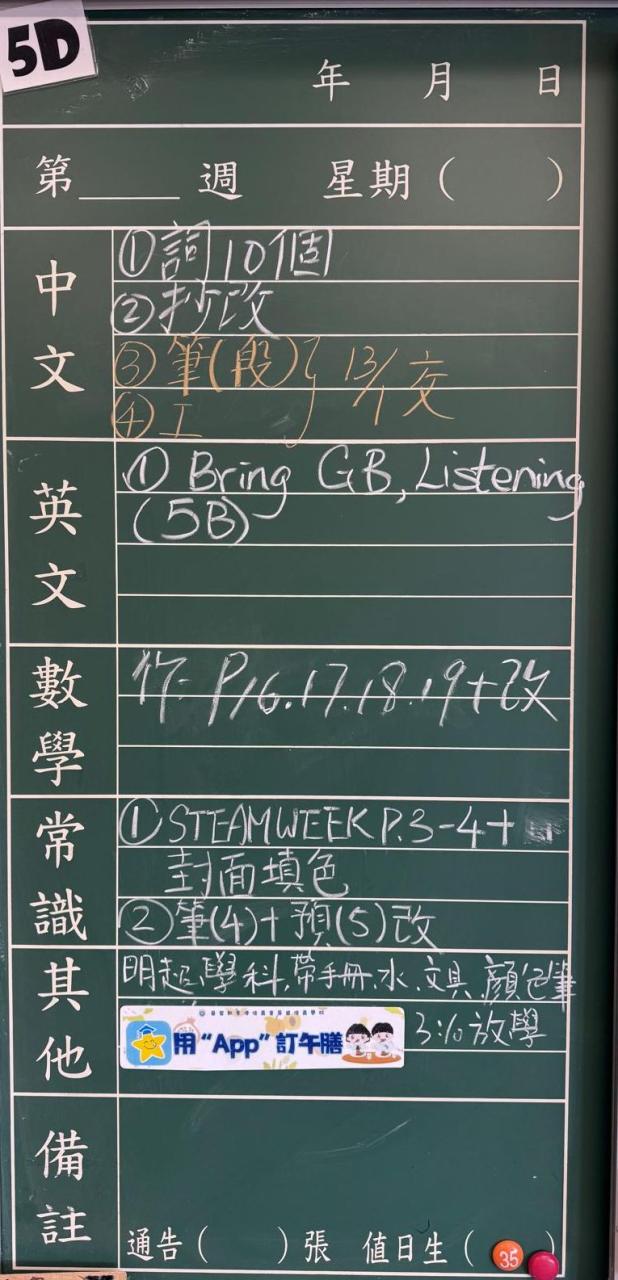 5D
年 月 日
第____週 星期( )
中文
①詞10個
②抄改
③筆(段)} 13/1交
④工
英文
① Bring GB, Listening
(5B)
數學
作 P.16.17.18.19+改
常識
①STEAMWEEK P.3-4+
封面填色
②筆(4)+預(5)改
其他
明起學科,帶手冊、水、文具、顏色筆
用“App”訂午膳
3:10放學
備註
通告( )張 值日生( )
35